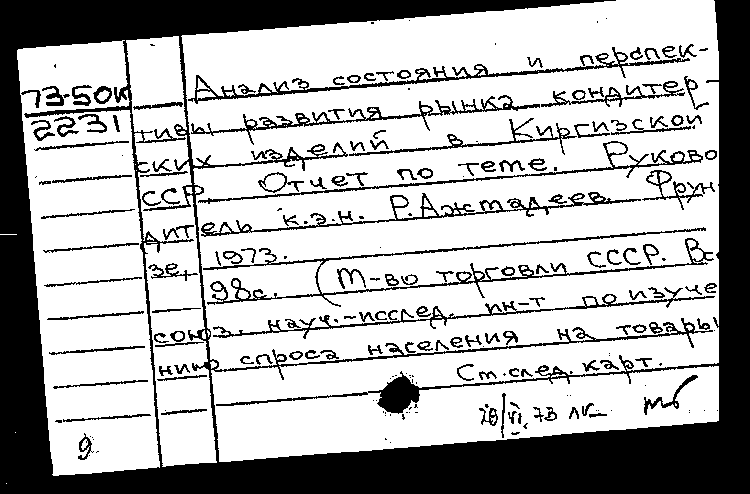 73-50к
2231
Анализ состояния и перспек-
тивы развития рынка кондитер-
ских изделий в Киргизской
ССР. Отчет по теме. Руково
дитель к.э.н. Р.Ажмадеев. Фрун-
зе, 1973.
98с. (М-во торговли СССР. Вс
союз. науч.-исслед. ин-т по изуче
нию спроса населения на товары
См. след. карт.
28/VI.73
9